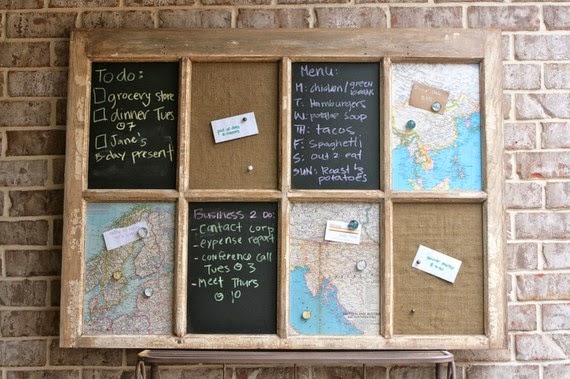 To do:
grocery store
dinner Tues
@7
Jane's
B-day present
Menu:
M: chicken/green beans
T: Hamburgers
W: potatoe Soup
TH: tacos
F: Spaghetti
S: out 2 eat
SUN: Roast & potatoes
Business 2 Do:
-Contact Corp
-expense report
-conference call
Tues @ 3
-Meet Thurs
@ 10